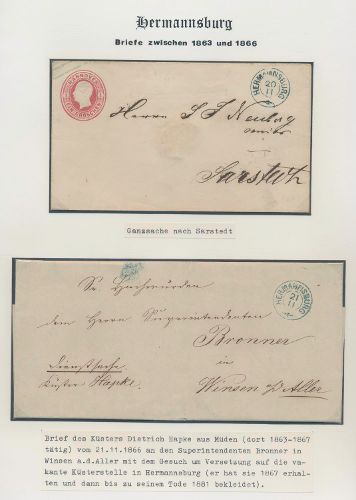 Hermannsburg
Briefe zwischen 1863 und 1866
HANNOVER
EIN GROSCHEN
HERMANNSBURG
20
11
Herrn S J Neuberg
senior
Sarstedt
Ganzsache nach Sarstedt
HERMANNSBURG
21
11
Sr. Hochwürden
dem Herrn Superintendenten
Bronner
in
Dienstsache
Küster Hapke
Winsen a/d Aller
Brief des Küsters Dietrich Hapke aus Müden (dort 1863-1867
tätig) vom 21.11.1866 an den Superintendenten Bronner in
Winsen a.d.Aller mit dem Gesuch um Versetzung auf die va-
kante Küsterstelle in Hermannsburg (er hat sie 1867 erhal-
ten und dann bis zu seinem Tode 1881 bekleidet).